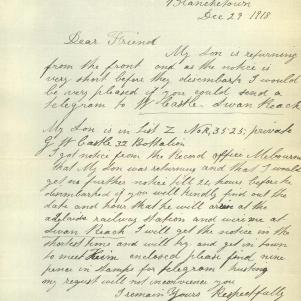 Blanchetown
Dec 29 1918
Dear Friend
My Son is returning
from the front and as the notice is
very short before they disembark I would
be very pleased if you could send a
telegram to W Castle. Swan Reach
My Son is in List Z No R, 3525, private
G W Castle 32 Battalion
I got notice from the Record office Melbourne
that My Son was returning and that I would
get no further notice till 24 hours before he
disembarked if you will kindly find out the
date and hour that he will at the
adelaide railway station and wire me at
Swan Reach I will get the notice in the
shortest time and will try and get in town
to meet him enclosed please find nine
pence in stamps for telegram trusting
my request will not inconvenience you
I remain Yours Respectfully